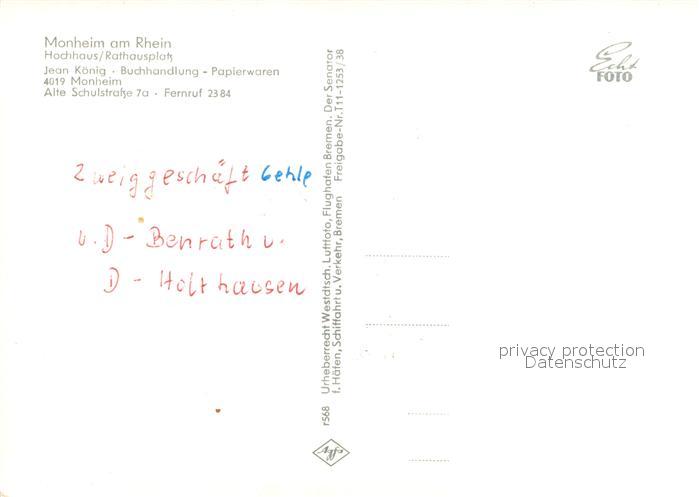 Monheim am Rhein
Hochhaus/Rathausplatz
Jean König · Buchhandlung - Papierwaren
4019 Monheim
Alte Schulstraße 7a · Fernruf 2384
Zweiggeschäft Gehle
u. D - Benrath u.
D - Holthausen
r568 Urheberrecht Westdtsch. Luftfoto, Flughafen Bremen. Der Senator
f. Häfen, Schiffahrt u. Verkehr, Bremen Freigabe-Nr. T11-1253/38
Agfa
Echt
FOTO
privacy protection
Datenschutz